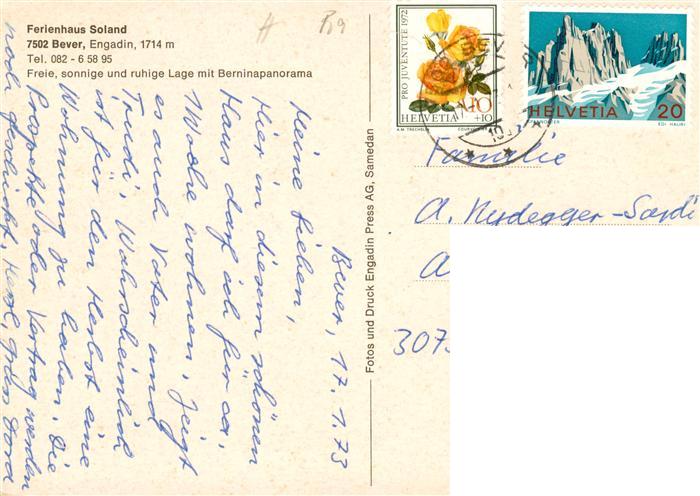 Ferienhaus Soland
7502 Bever, Engadin, 1714 m
Tel. 082 - 6 58 95
Freie, sonnige und ruhige Lage mit Berninapanorama
PRO JUVENTUTE 1972
10
+10
HELVETIA
A.M. TRECHSLIN
COURVOISIER
BEVER
HELVETIA 20
EDI HAURI
Fotos und Druck Engadin Press AG, Samedan
Familie
A. Nydegger-
A
3073
Bever, 17. 1. 73
Meine Lieben,
Hier in diesem schönen
Haus darf ich für ca.
1 Woche wohnen. Jetzt
es auch Vater und
Trudi. Wahrscheinlich
ist für den Herbst eine
Wohnung zu haben. Die
Prospekte oder Vertrag werden
noch geschickt. Herzl. Grüsse Dora